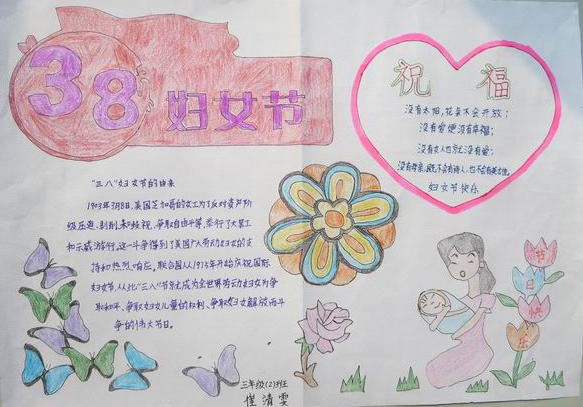 38妇女节
祝福
没有太阳,花朵不会开放;
没有爱便没有幸福;
没有女人也就没有爱;
没有母亲,既不会有诗人,也不会有英雄。
妇女节快乐
"三八"妇女节的由来
1903年3月8日,美国芝加哥的女工为了反对资产阶
级压迫、剥削和歧视,争取自由平等,举行了大罢工
和示威游行,这一斗争得到了美国广大劳动妇女的支
持和热烈响应。联合国从1975年开始庆祝国际
妇女节,从此"三八"节就成为全世界劳动妇女为争
取和平、争取妇女儿童的权利、争取妇女解放而斗
争的伟大节日。
节日快乐
三年级(2)班
崔清雯